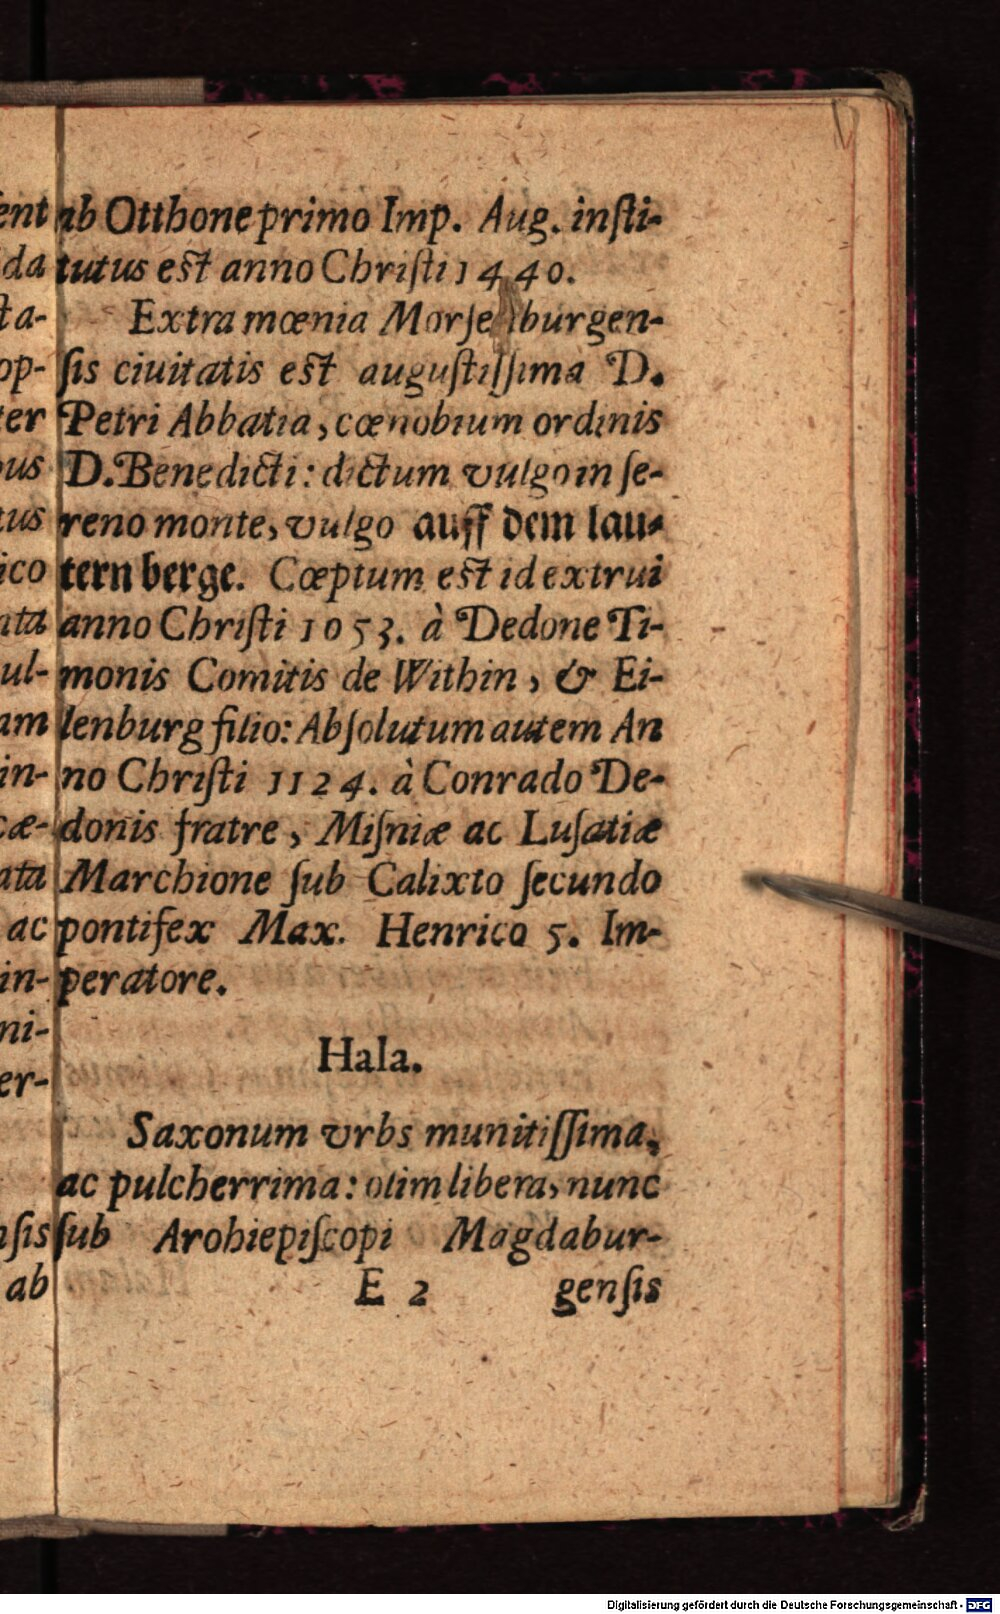 ab Otthone primo Imp. Aug. insti-
tutus est anno Christi 1440.
Extra mœnia Morsenburgen-
sis ciuitatis est augustissima D.
Petri Abbatia, cœnobium ordinis
D. Benedicti: dictum vulgo in se-
reno monte, vulgo auff dem lau-
tern berge. Cœptum est id extrui
anno Christi 1053. à Dedone Ti-
monis Comitis de Within, & Ei-
lenburg filio: Absolutum autem An
no Christi 1124. à Conrado De-
donis fratre, Misniæ ac Lusatiæ
Marchione sub Calixto secundo
pontifex Max. Henrico 5. Im-
peratore.
Hala.
Saxonum vrbs munitissima,
ac pulcherrima: olim libera, nunc
sub Arohiepiscopi Magdabur-
E 2 gensis
ent
da
sta-
op-
ter
tus
ico
ata
ul-
am
in-
cæ-
ata
ac
in-
ni-
er-
nsis
ab
Digitalisierung gefördert durch die Deutsche Forschungsgemeinschaft - DFG